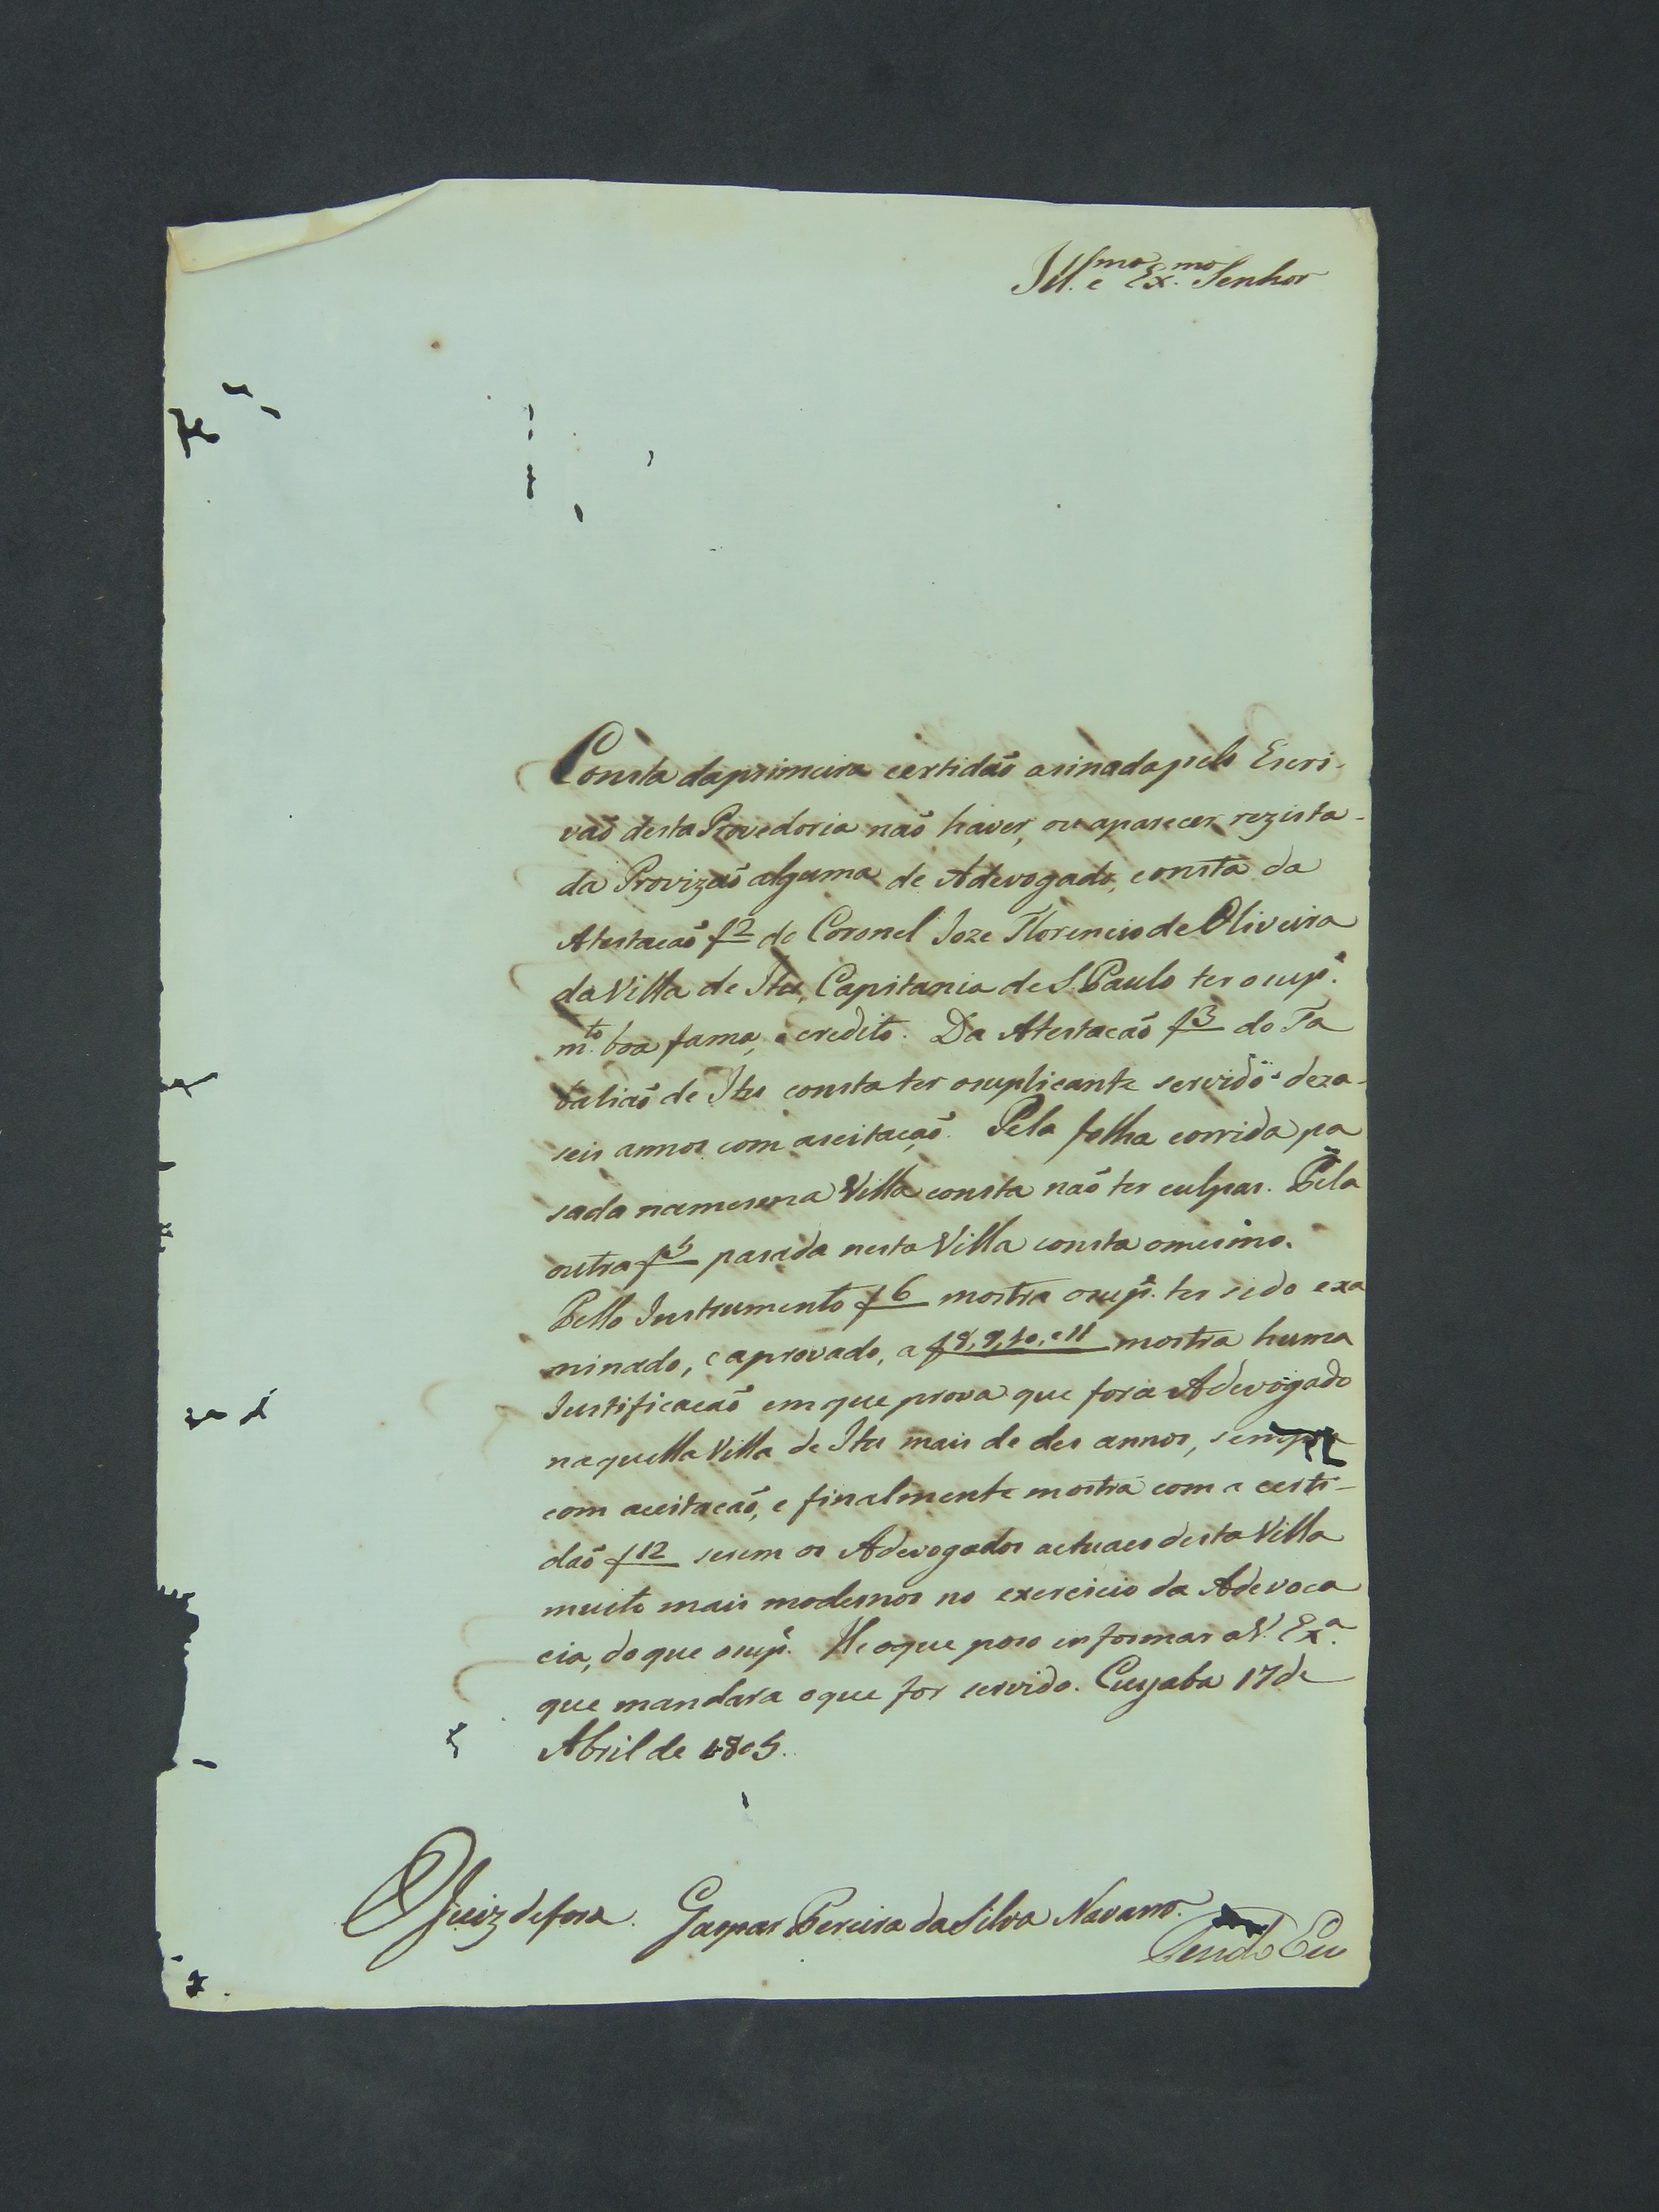 Ill.mo e Ex.mo Senhor
Consta daprimeira certidaõ asinadapelo Escri-
vaõ destaProvedoria naõ haver, ou aparecer rezista-
da Provizaõ alguma de Adevogado, consta da
Atestacaõ f2 do Coronel Joze Florencio de Oliveira
da Villa de Itu, Capitania de S. Paulo ter osup.e
m.to boa fama, e credito. Da Atestacaõ f3 do Ta
baliaõ de Itu consta ter osuplicante servido deza-
seis annos com aseitaçaõ. Pela folha corrida pa
sada namesma Villa consta naõ ter culpas. Pela
outra f5 pasada nesta Villa consta omesmo.
Pello Instrumento f6 mostra osup.e ter sido exa
minado, e aprovado, a f8, 9, 10, e 11 mostra huma
Justificacaõ em que prova que fora Adevogado
naquella Villa de Itu mais de des annos, sempre
com aceitacaõ, e finalmente mostra com a certi-
daõ f12 serem os Adevogados actuaes desta Villa
muito mais modernos no exercicio da Adevoca
cia, do que osup.e He oque poso informar aV. Ex.a
que mandara oque for servido. Cuyaba 17 de
Abril de 1805.
O Juiz de fora. Gaspar Pereira da Silva Navarro.
Sendo Eu